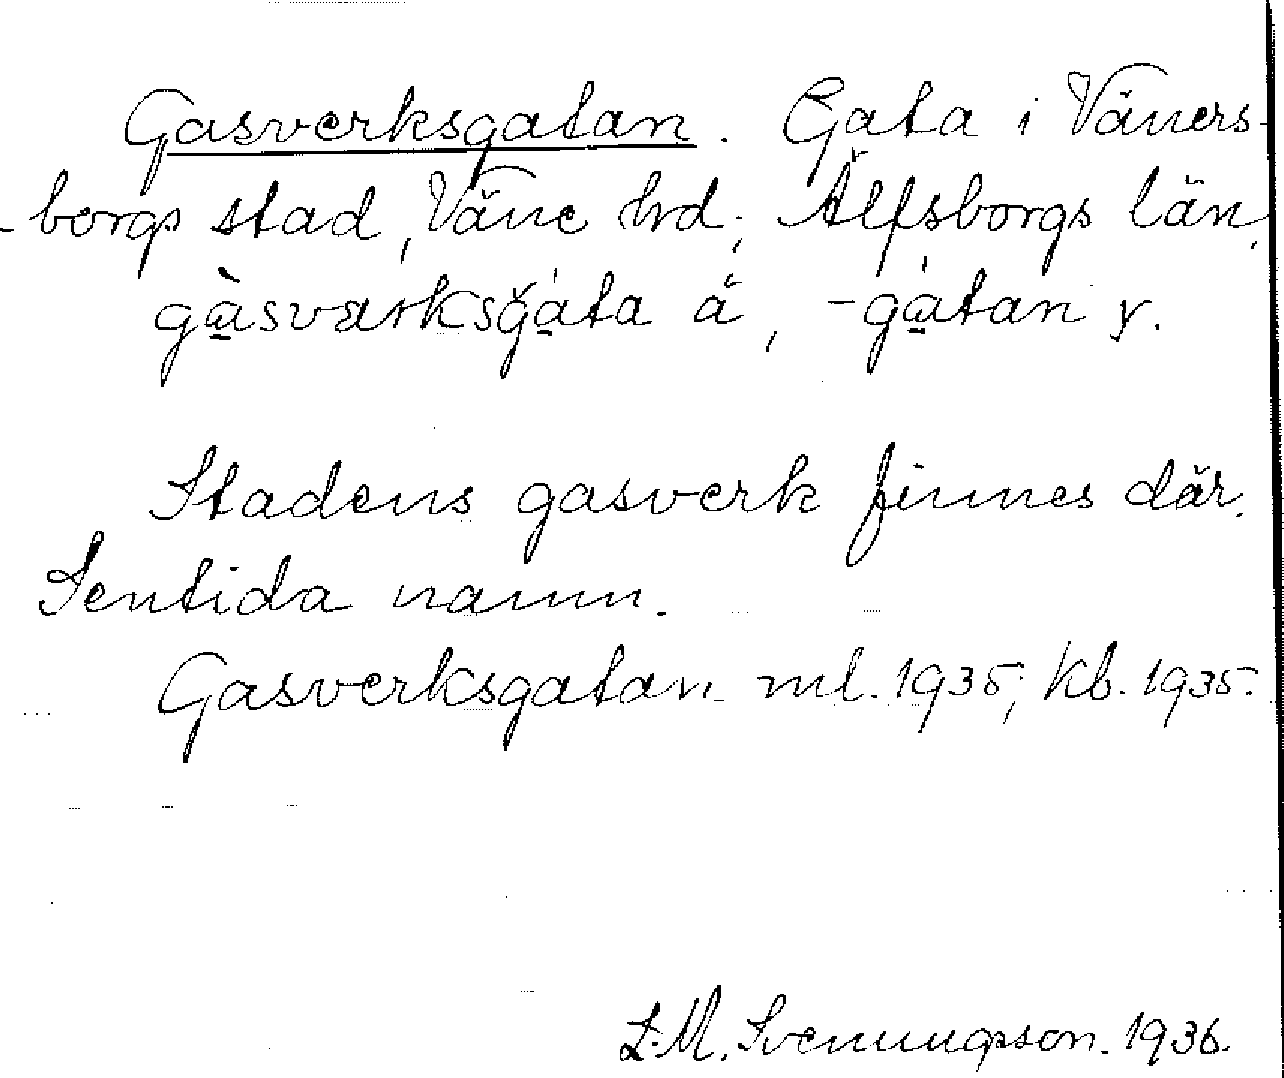 Gasverksgatan. Gata i Väners-
-borgs stad, Väne hd; Älfsborgs län,
gàsvarksgáta ä, -gàtan y.
Stadens gasverk finnes där.
Sentida namn.
Gasverksgatan ml. 1935; Kb. 1935.
L.M. Svenungsson. 1936.